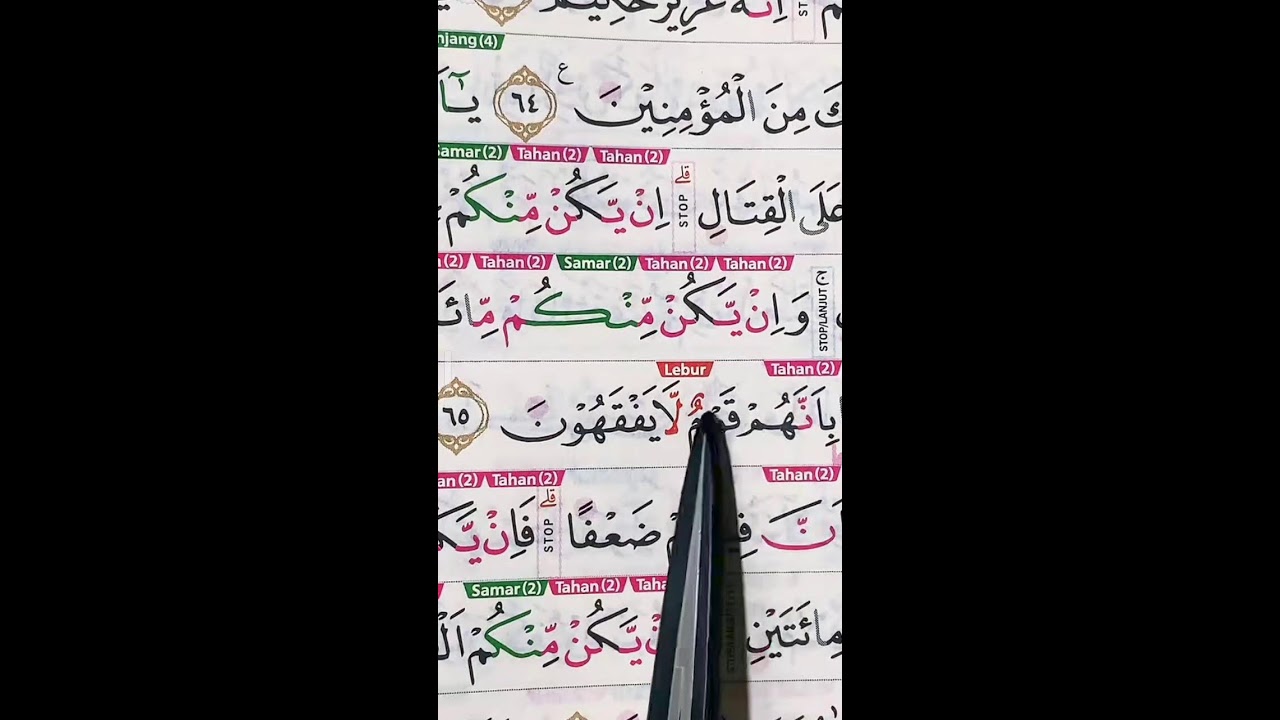 اِنَّهٗ عَزِيْزٌ حَكِيْمٌ
njang (4)
كَ مِنَ الْمُؤْمِنِيْنَ ࣖ ٦٤
amar (2) Tahan (2) Tahan (2)
عَلَى الْقِتَالِ ۗ STOP اِنْ يَّكُنْ مِّنْكُمْ
(2) Tahan (2) Samar (2) Tahan (2) Tahan (2)
STOP/LANJUT ۚ وَاِنْ يَّكُنْ مِّنْكُمْ مِّائَ
Lebur Tahan (2)
بِاَنَّهُمْ قَوْمٌ لَّا يَفْقَهُوْنَ ٦٥
an (2) Tahan (2) Tahan (2)
اَنَّ ضَعْفًا ۗ STOP فَاِنْ يَّكُ
Samar (2) Tahan (2) Taha
مِائَتَيْنِ يَّكُنْ مِّنْكُمْ اَلْ